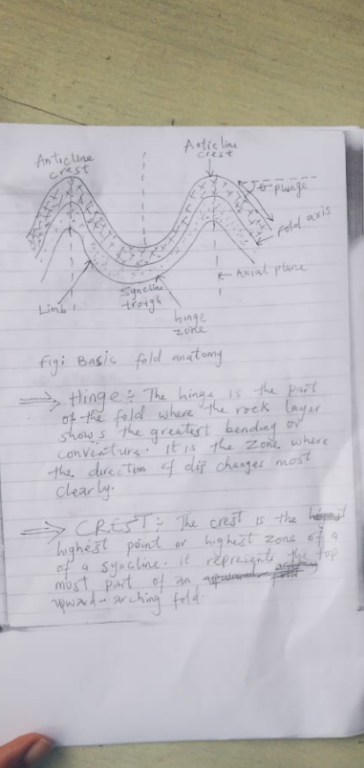 Anticline
crest
Anticline
crest
plunge
fold axis
Axial plane
Limb
Syncline
trough
hinge
zone
Fig: Basic fold anatomy
⇒ Hinge:- The hinge is the part
of the fold where the rock layer
shows the greatest bending or
conventure. It is the zone where
the direction of dip changes most
clearly.
⇒ CREST:- The crest is the
highest point or highest zone of a
of a syncline. it represents the top
most part of an
upward-arching fold.